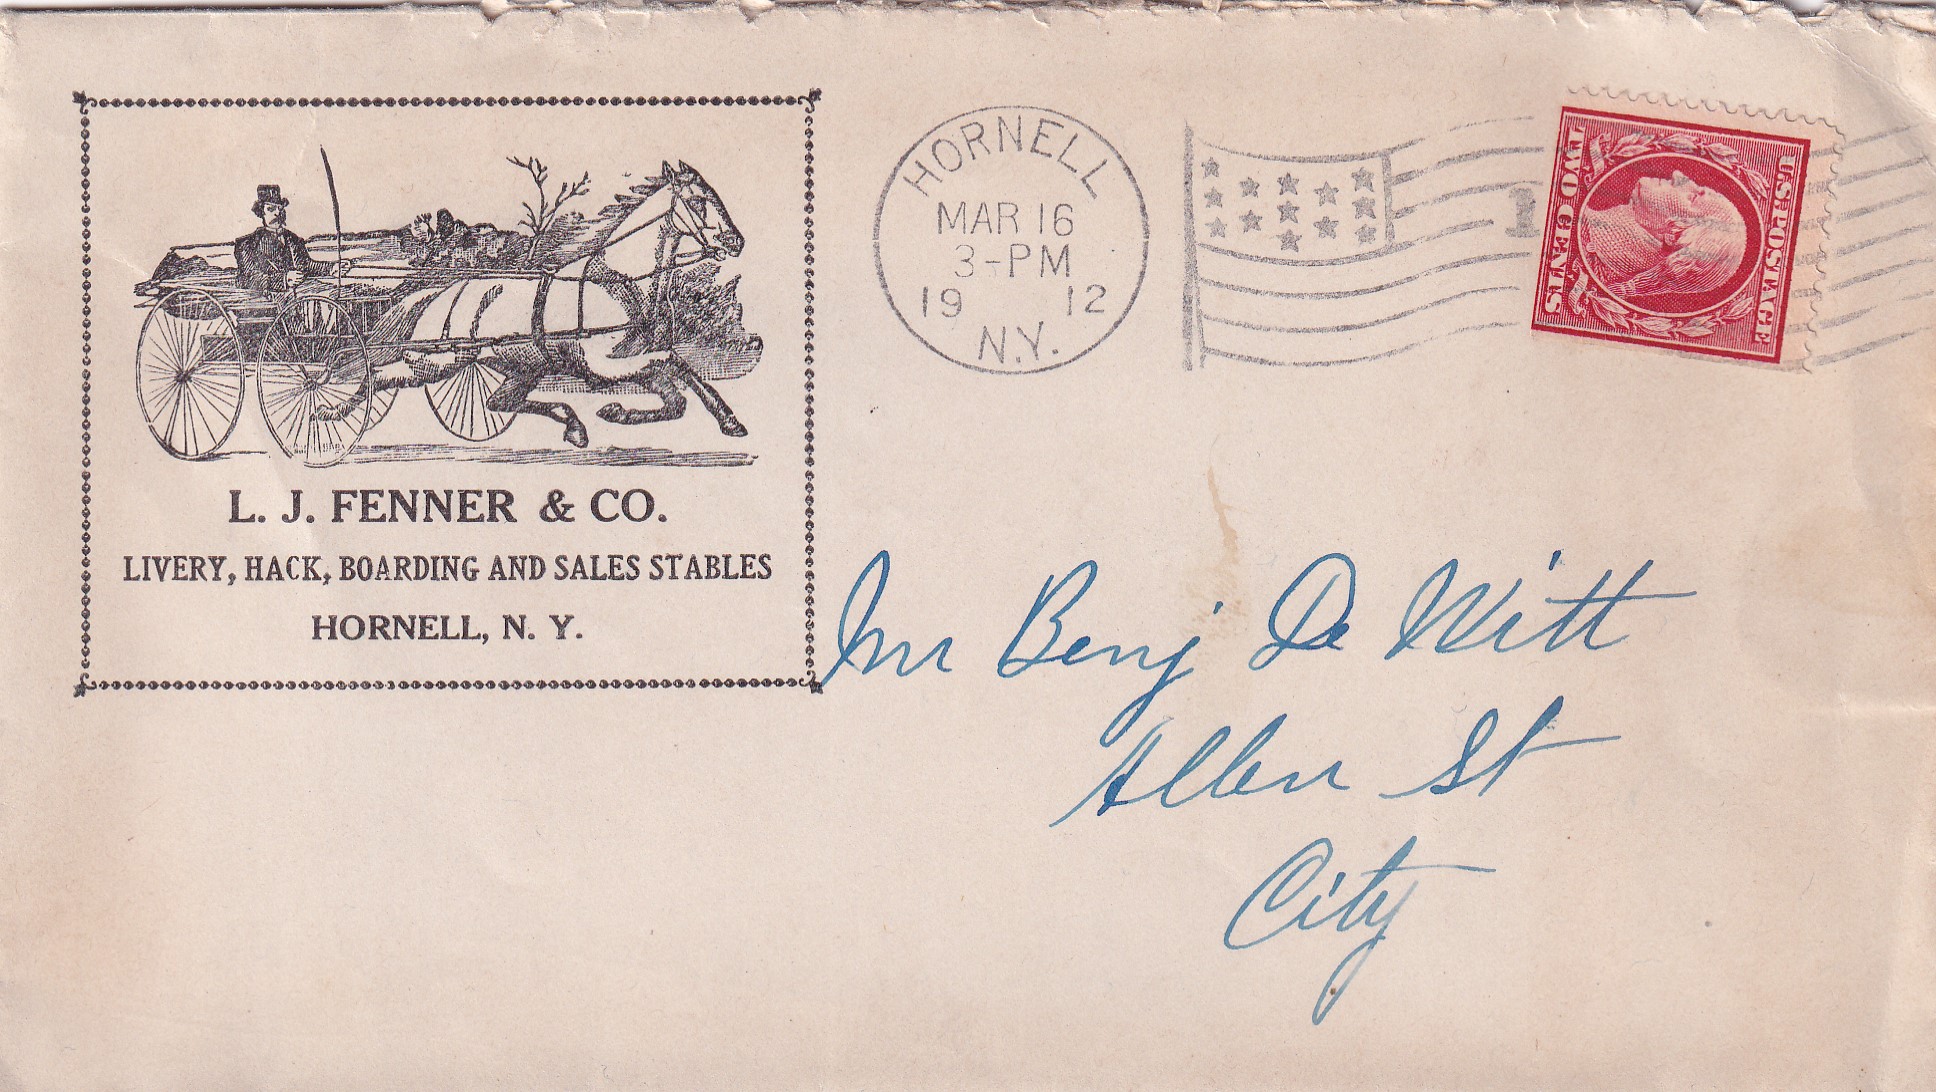 L. J. FENNER & CO.
LIVERY, HACK, BOARDING AND SALES STABLES
HORNELL, N. Y.
HORNELL
MAR 16
3-PM
19 12
N.Y.
1
U.S. POSTAGE
TWO CENTS
Mr Benj De Witt
Allen St
City